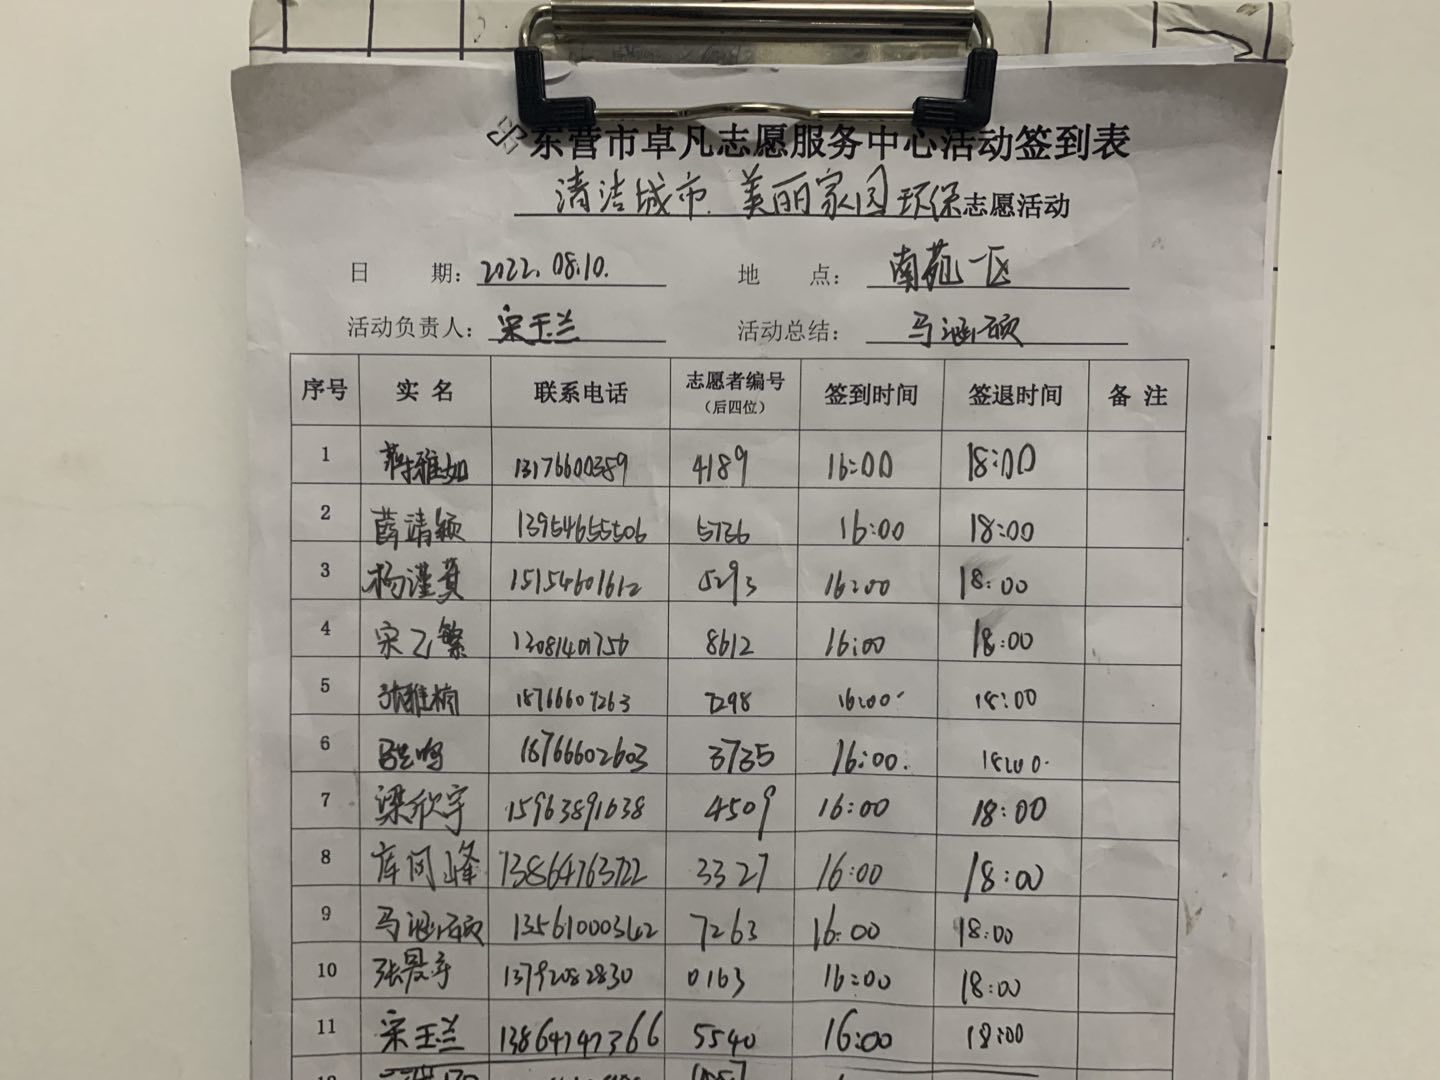 东营市卓凡志愿服务中心活动签到表
清洁城市 美丽家园环保志愿活动
日 期：2022.08.10. 地 点：南苑一区
活动负责人：宋玉兰 活动总结：马涵硕
序号 实名 联系电话 志愿者编号（后四位） 签到时间 签退时间 备注
1 蒋雅如 13176600389 4189 16:00 18:00
2 薛靖颖 13954655506 5736 16:00 18:00
3 杨谨蔓 15154601612 5293 16:00 18:00
4 宋乙繁 13081401756 8612 16:00 18:00
5 张雅楠 18766607263 7298 16:00 18:00
6 18766602603 3735 16:00 18:00
7 梁欣宇 15963891638 4509 16:00 18:00
8 库同峰 13864763722 3327 16:00 18:00
9 马涵硕 13561000342 7263 16:00 18:00
10 13792082830 0163 16:00 18:00
11 宋玉兰 13864747366 5540 16:00 18:00